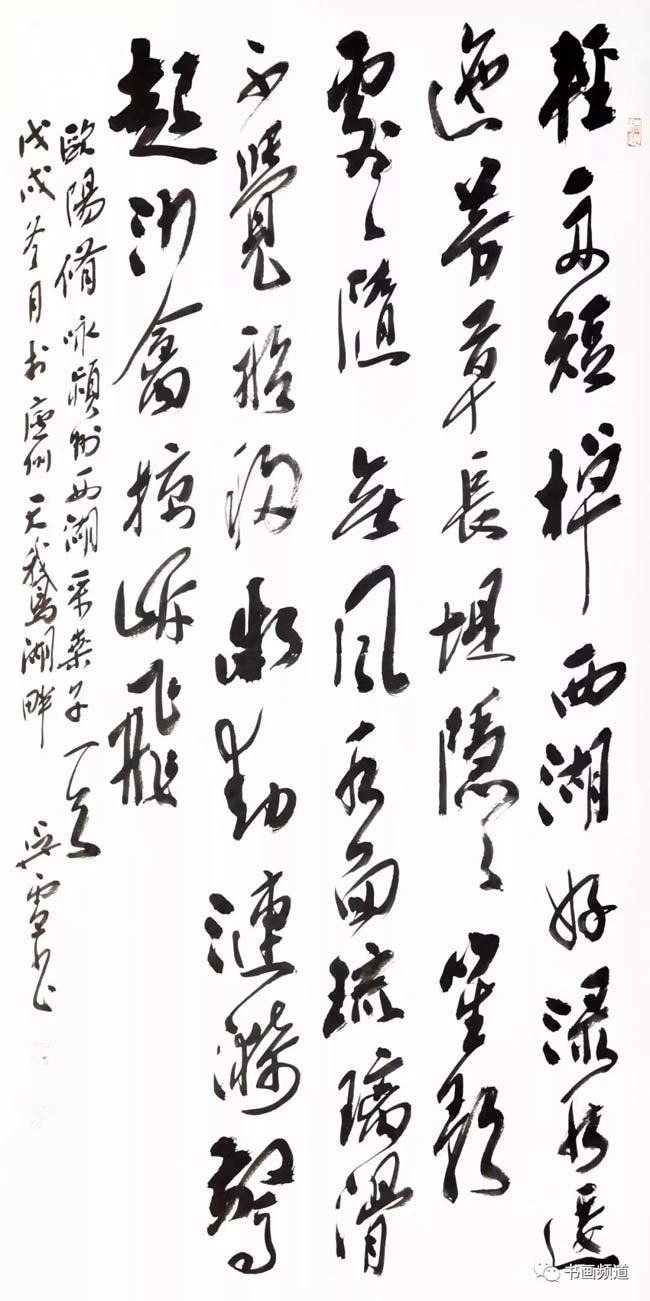 輕舟短棹西湖好渌水逶
迤芳草長堤隱々笙歌
處々隨無風水面琉璃滑
不覺船移微動漣漪驚
起沙禽掠岸飛
歐陽脩咏潁州西湖采桑子一首
戊戌月书廬州天鵝湖畔吳雪
书画频道